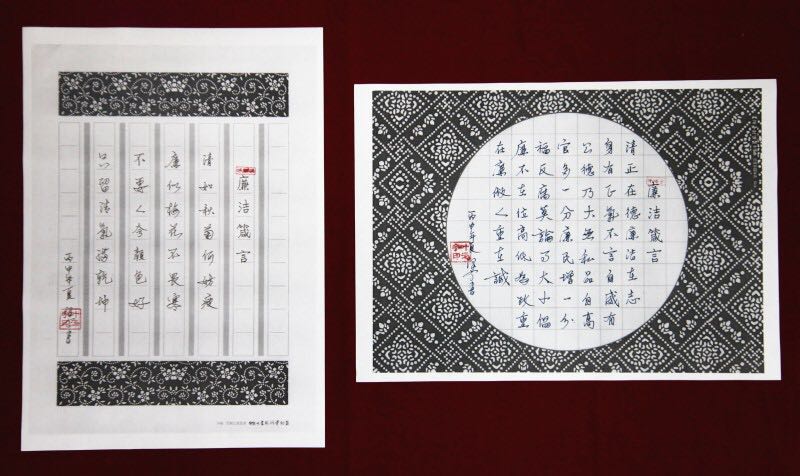 廉洁箴言
清如秋菊何妨瘦
廉似梅花不畏寒
不要人夸颜色好
只留清氣满乾坤
丙申年夏
廉洁箴言
清正在德廉洁在志
身有正氣不言自威有
公德乃大無私品自高
官多一分廉民增一分
福反腐莫論事大小倡
廉不在位高低為政重
在廉做人重在誠
丙申年夏